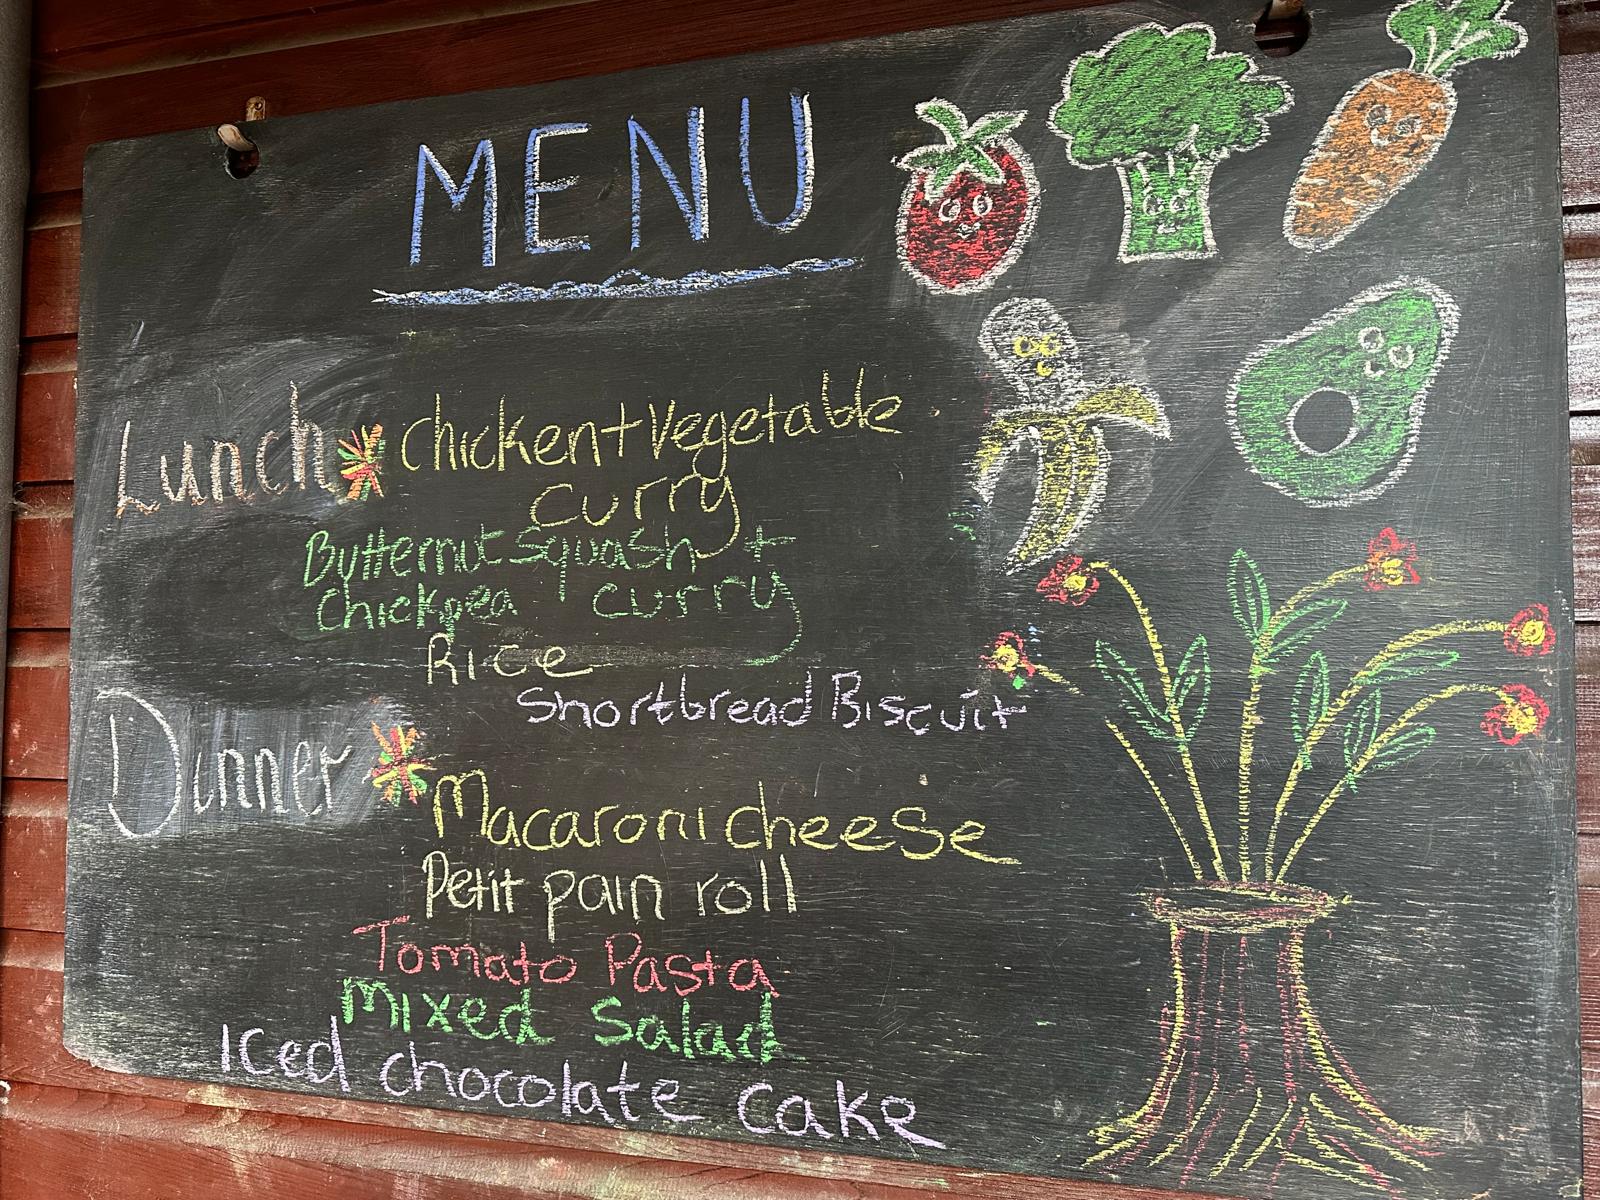 MENU
Lunch chicken + Vegetable
curry
Butternut squash +
chickpea curry
Rice
Shortbread Biscuit
Dinner
Macaroni cheese
Petit pain roll
Tomato Pasta
Mixed Salad
Iced chocolate cake